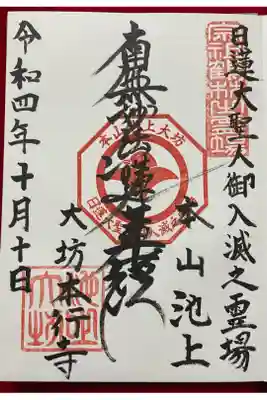 日蓮大聖人御入滅之霊場
本山池上
南無妙法蓮華経
大坊本行寺
令和四年十月十日
本山池上大坊
日蓮大聖人御入滅之